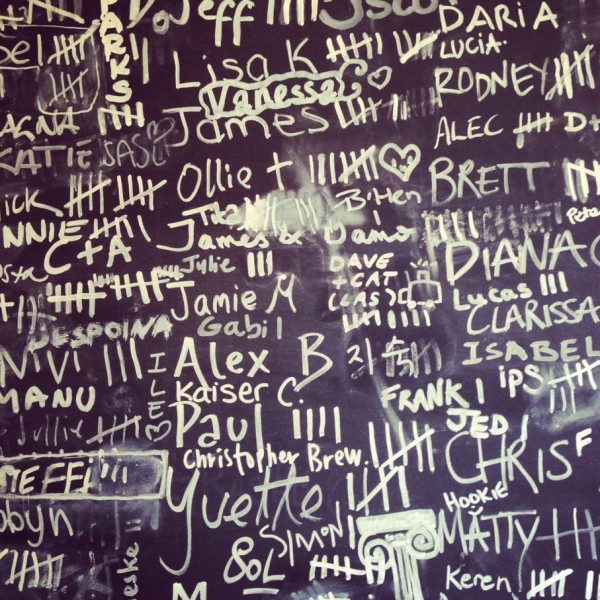 Jeff
DARIA
LUCIA.
PARKS
Lisa K
RODNEY
Vanessa
James
AGNA
ALEC
D+
KATIE
JAS
Ollie +
BRETT
B'Hen
Pete
NNIE
James &
C+A
Julie
DAVE
+ CAT
(LAS)
DIANA
Lucas
Jamie M
CLARISSA
Gabi
DESPOINA
ISABEL
Nivi
Alex B
MANU
ILE
Kaiser C.
FRANK
iPS
Paul
JED
Jullie
Christopher Brew.
CHRIS
F
STEFFI
Yvette
HOOKIE
SIMON
MATTY
obyn
&OL
eske
M
Keren